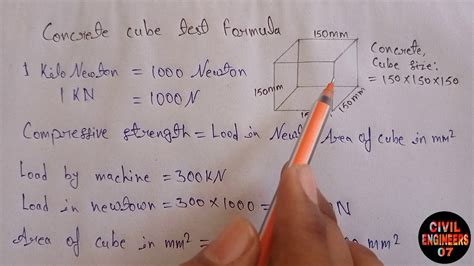 Concrete cube test formula
150mm
1 Kilo Newton = 1000 Newton
1 KN = 1000N
150mm
150mm
Concrete,
Cube Size:
= 150×150×150
Compressive strength = Load in Area of cube in mm²
Load by machine = 300KN
Load in newtown = 300 × 1000 = N
Area of cube in mm² =
CIVIL
ENGINEERS
07